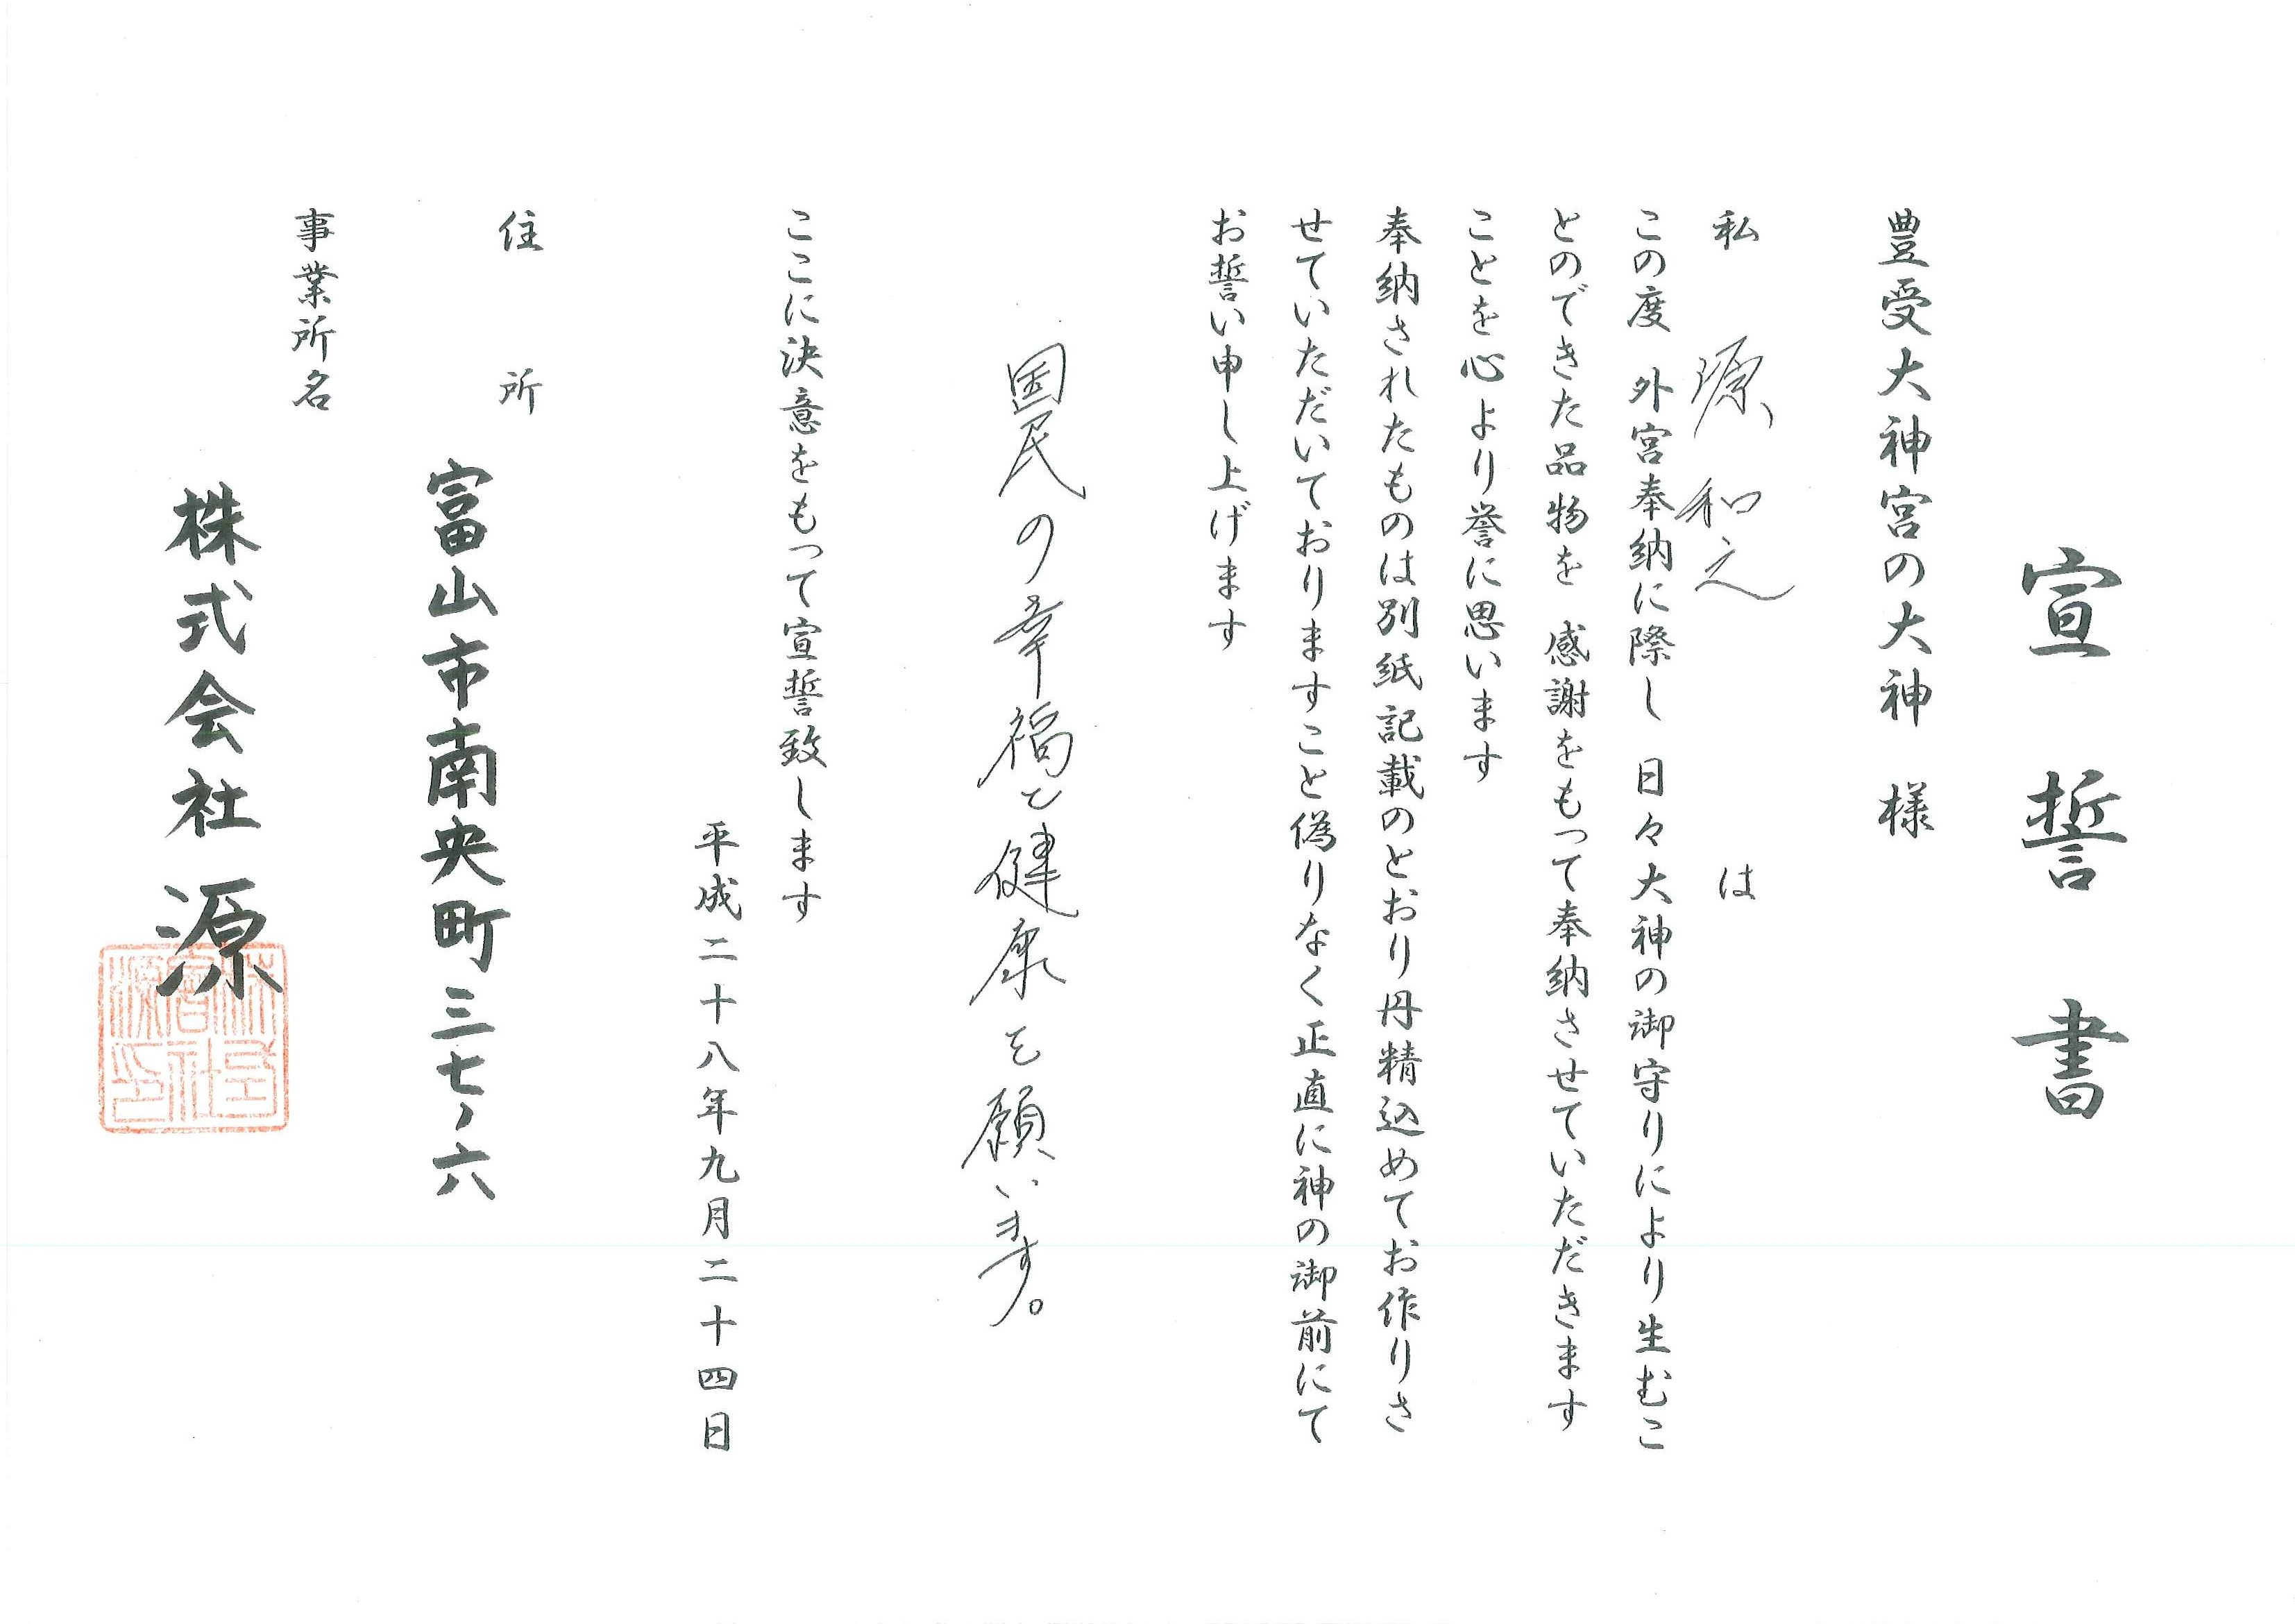 宣誓書
豊受大神宮の大神 様
私 源 和之 は
この度 外宮奉納に際し 日々大神の御守りにより生むこ
とのできた品物を 感謝をもって奉納させていただきます
ことを心より誉に思います
奉納されたものは別紙記載のとおり丹精込めてお作りさ
せていただいておりますこと偽りなく正直に神の御前にて
お誓い申し上げます
国民の幸福と健康を願います。
ここに決意をもって宣誓致します
平成二十八年九月二十四日
住所
富山市南央町三七ノ六
事業所名
株式会社 源
株式会社源之印